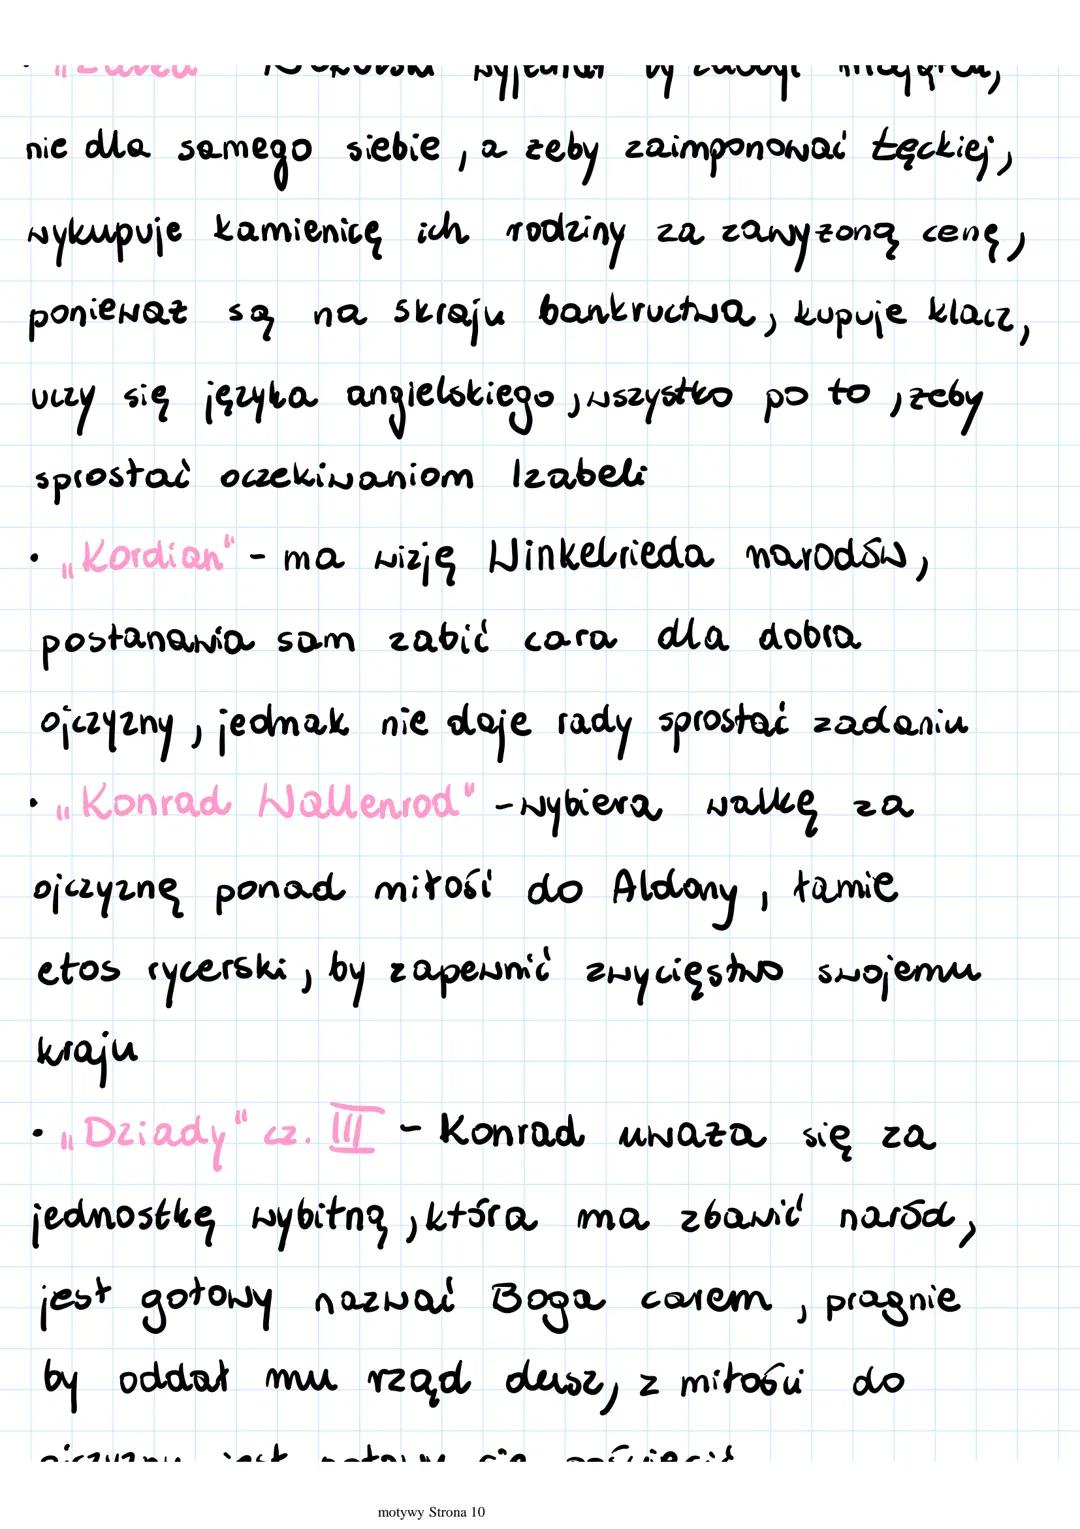 wyjechał by zdobyć majątek,
nie dla samego siebie, a żeby zaimponować Łęckiej,
wykupuje kamienicę ich rodziny za zawyżoną cenę,
ponieważ są na skraju bankructwa, kupuje klacz,
uczy się języka angielskiego, wszystko po to, żeby
sprostać oczekiwaniom Izabeli
• „Kordian" - ma wizję Winkelrieda narodów,
postanawia sam zabić cara dla dobra
ojczyzny, jednak nie daje rady sprostać zadaniu
• „Konrad Wallenrod" - wybiera walkę za
ojczyznę ponad miłość do Aldony, łamie
etos rycerski, by zapewnić zwycięstwo swojemu
kraju
• „Dziady" cz. III - Konrad uważa się za
jednostkę wybitną, która ma zbawić naród,
jest gotowy nazwać Boga carem, pragnie
by oddał mu rząd dusz, z miłości do
ojczyzny jest gotowy się poświęcić
motywy Strona 10